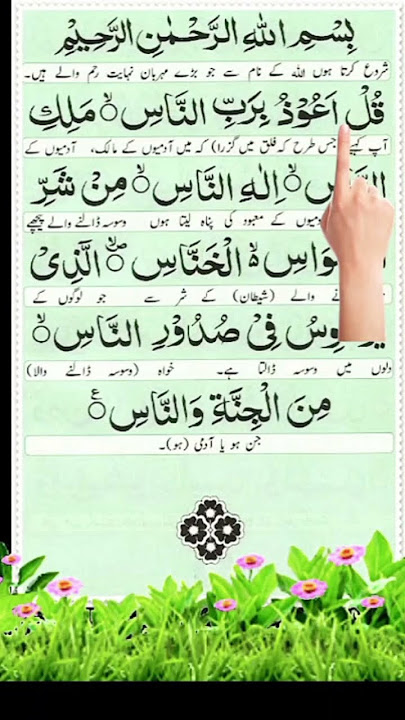 بِسْمِ اللهِ الرَّحْمٰنِ الرَّحِيْمِ
شروع کرتا ہوں اللہ کے نام سے جو بڑے مہربان نہایت رحم والے ہیں۔
قُلْ اَعُوْذُ بِرَبِّ النَّاسِ ۙ مَلِكِ
آپ کہیے جس طرح کہ فلق میں گزرا) کہ میں آدمیوں کے مالک، آدمیوں کے
النَّاسِ ۙ اِلٰهِ النَّاسِ ۙ مِنْ شَرِّ
کے معبود کی پناہ لیتا ہوں وسوسہ ڈالنے والے پیچھے
الْخَنَّاسِ ۪ۙ الَّذِیْ
والے (شیطان) کے شر سے جو لوگوں کے
فِیْ صُدُوْرِ النَّاسِ ۙ
دلوں میں وسوسہ ڈالتا ہے۔ خواہ (وسوسہ ڈالنے والا)
مِنَ الْجِنَّةِ وَالنَّاسِ ۠
جن ہو یا آدمی (ہو)۔